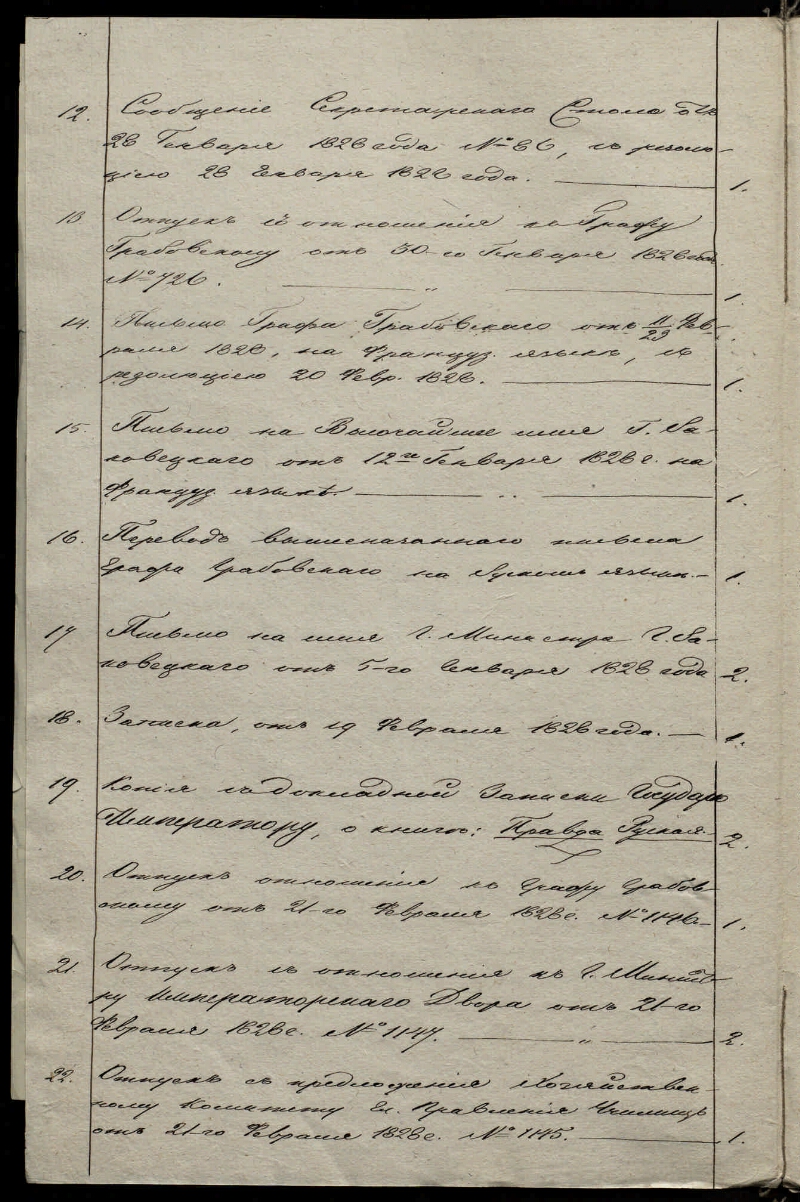 12. Сообщеніе Секретарскаго Стола отъ
28 Генваря 1828 года № 86, съ резолю-
ціею 28 Генваря 1828 года. 1.
13 Отпускъ съ отношенія къ Графу
Грабовскому отъ 30-го Генваря 1828 года
№ 726. „ 1.
14. Письмо Графа Грабовскаго отъ 11/23 Фев-
раля 1828, на Француз. языкѣ, съ
резолюціею 20 Февр. 1828. 1.
15. Письмо на Высочайшее имя Г. Ра-
ковецкаго отъ 12го Генваря 1828 г. на
Француз. языкѣ. „ 1.
16. Переводъ вышесказаннаго письма
Графа Грабовскаго на Русском язык. 1.
17 Письмо на имя Г. Министра Г. Ра-
ковецкаго отъ 5-го Генваря 1828 года 2.
18. Записка, отъ 19 Февраля 1828 года. 1.
19. Копія съ докладной Записки Государю
Императору, о книгѣ: Правда Руская. 2.
20. Отпускъ отношенія къ Графу Грабов-
скому отъ 21-го Февраля 1828 г. № 1146 1.
21. Отпускъ съ отношенія къ Г. Минист-
ру Императорскаго Двора отъ 21-го
Февраля 1828 г. № 1147. „ 2.
22. Отпускъ съ предложенія Хозяйствен-
ному Комитету Гл. Правленія Училищъ
отъ 21-го Февраля 1828 г. № 1145. 1.